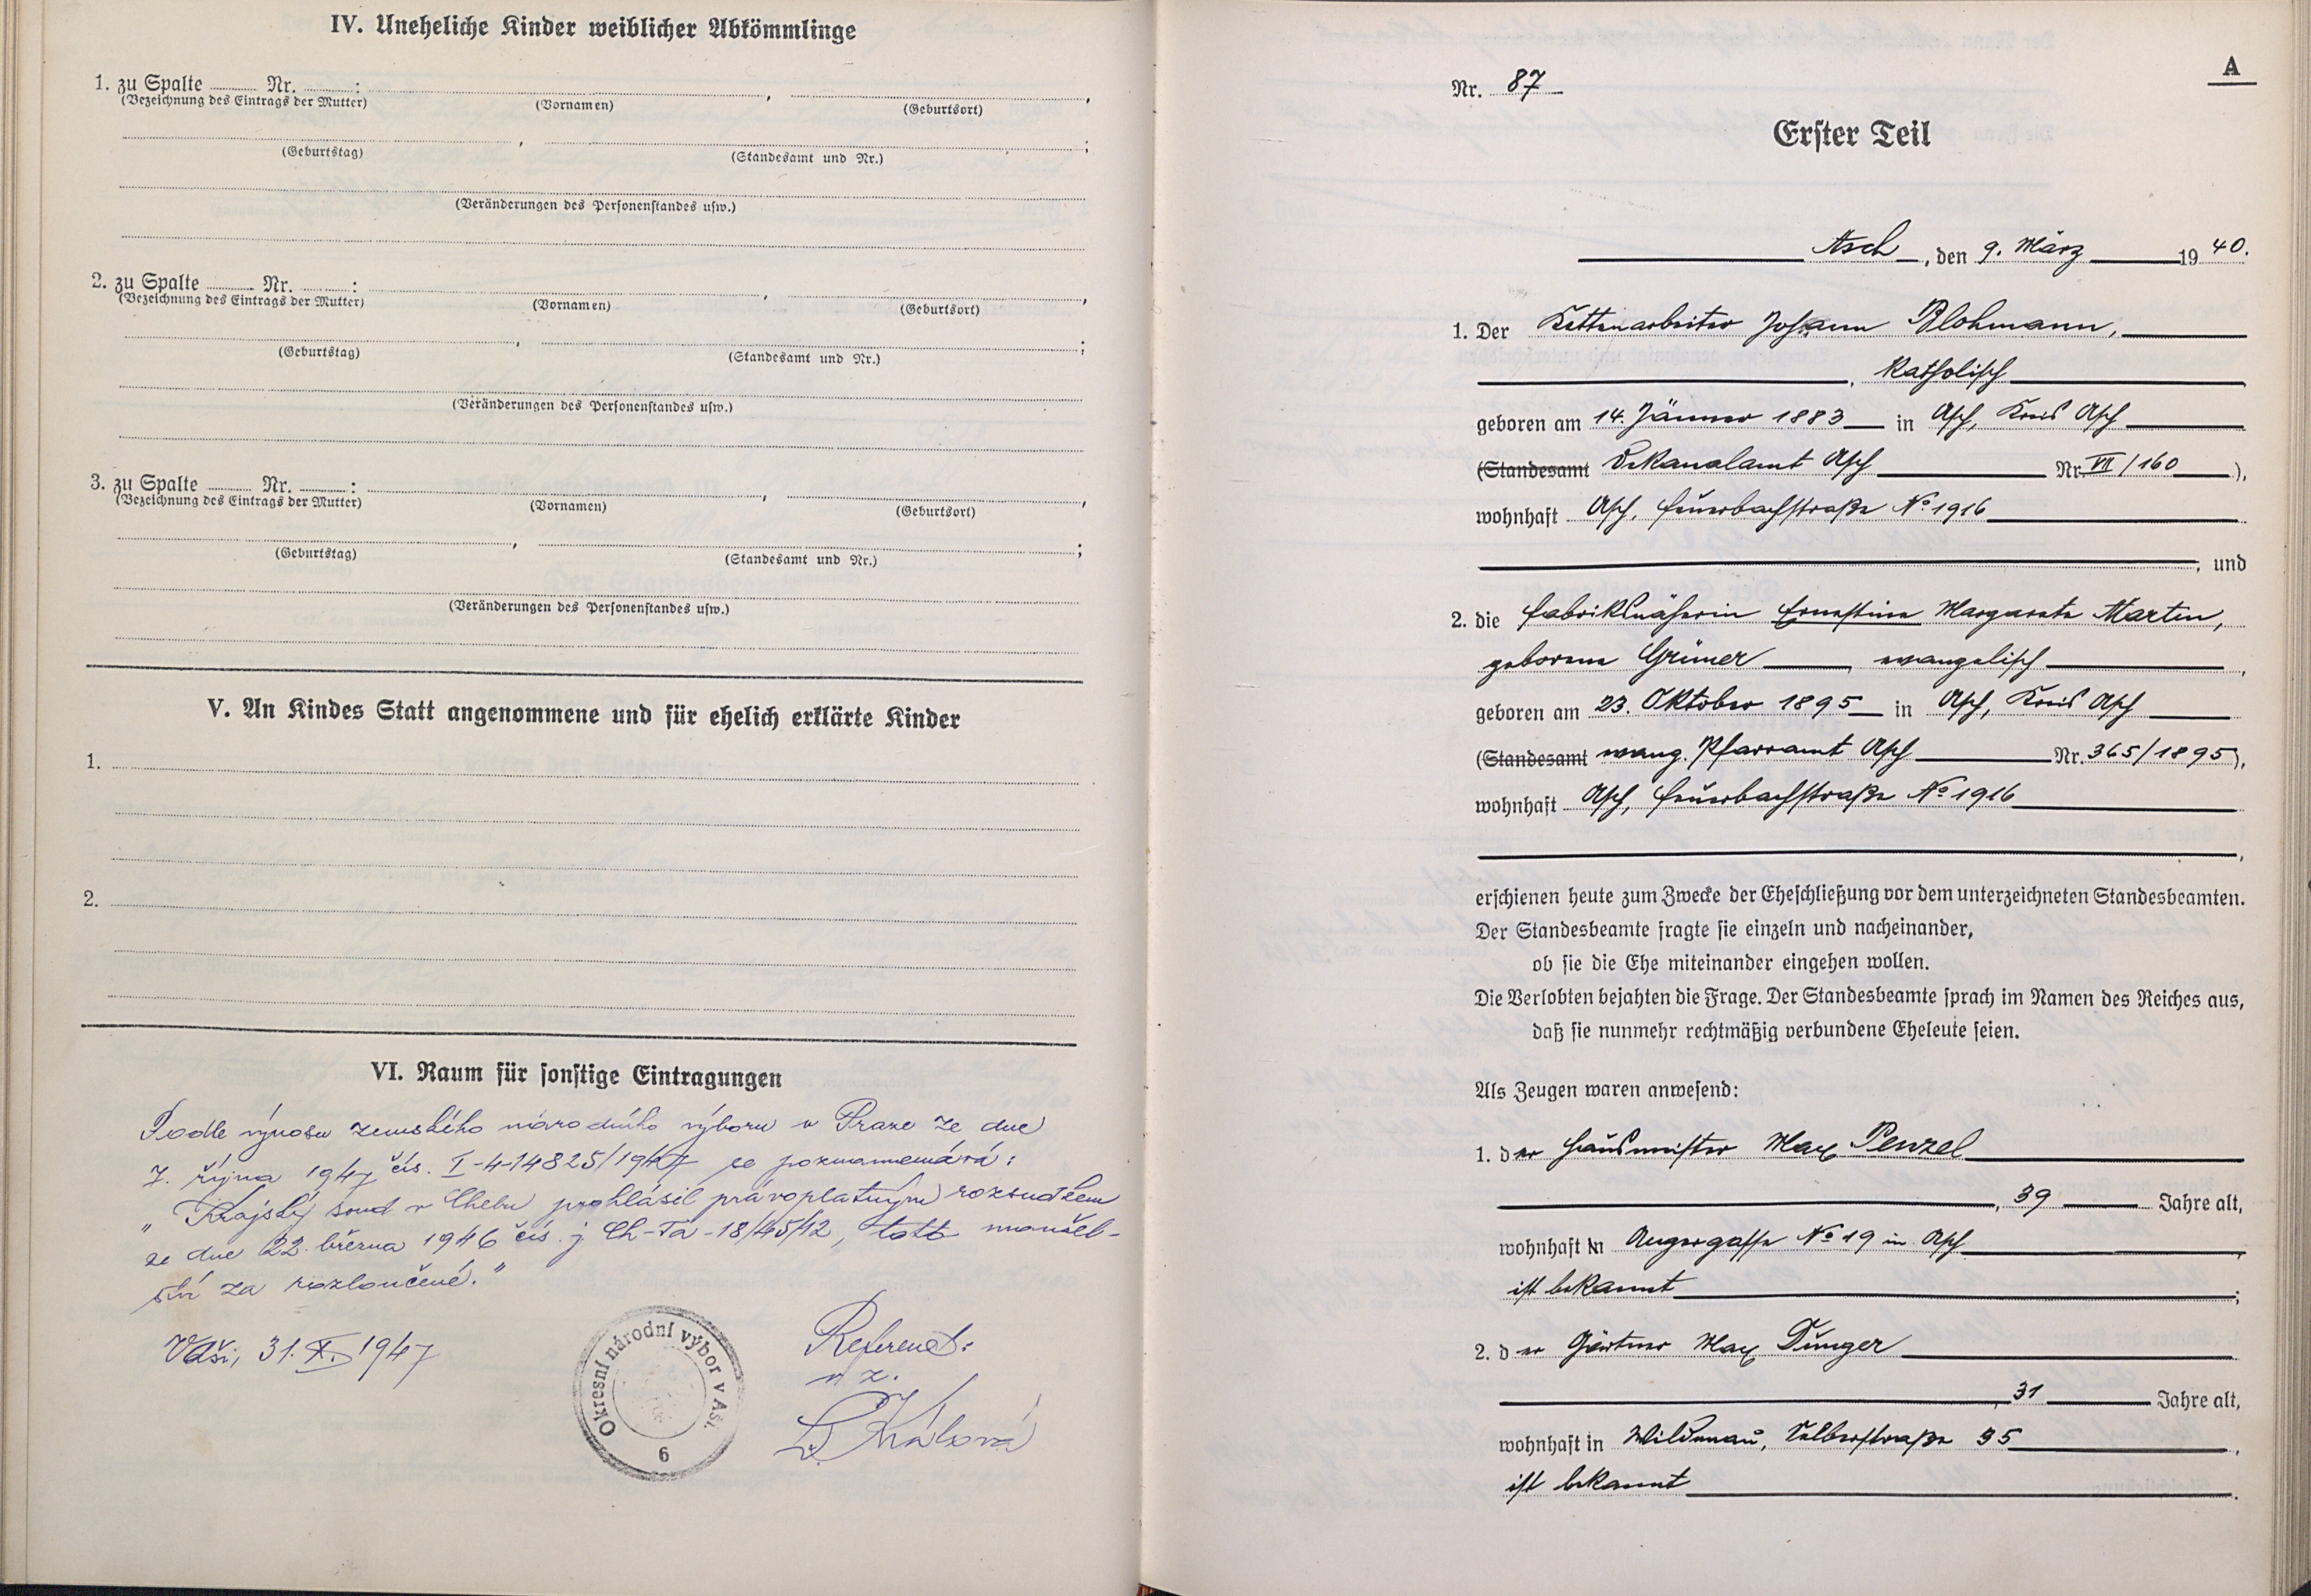 IV. Uneheliche Kinder weiblicher Abkömmlinge
1. zu Spalte ........ Nr. ........ :
(Bezeichnung des Eintrags der Mutter) (Vornamen) , (Geburtsort) ,
(Geburtstag) , (Standesamt und Nr.) ;
(Veränderungen des Personenstandes usw.)
2. zu Spalte ........ Nr. ........ :
(Bezeichnung des Eintrags der Mutter) (Vornamen) , (Geburtsort) ,
(Geburtstag) , (Standesamt und Nr.) ;
(Veränderungen des Personenstandes usw.)
3. zu Spalte ........ Nr. ........ :
(Bezeichnung des Eintrags der Mutter) (Vornamen) , (Geburtsort) ,
(Geburtstag) , (Standesamt und Nr.) ;
(Veränderungen des Personenstandes usw.)
V. An Kindes Statt angenommene und für ehelich erklärte Kinder
1.
2.
VI. Raum für sonstige Eintragungen
Podle výnosu zemského národního výboru v Praze ze dne
7. října 1947 čís. I-4-14825/1947 se poznamenává:
"Krajský soud v Chebu prohlásil právoplatným rozsudkem
ze dne 22. března 1946 čís. j. Ch-Ta-18/45/12, toto manžel-
ství za rozloučené."
V Aši, 31.X.1947
Okresní národní výbor v Aši.
6
Referent:
v z.
Nr. 87
A
Erster Teil
Asch, den 9. März 1940.
1. Der Kettenarbeiter Johann Blohmann,
, katholisch ,
geboren am 14. Jänner 1883 in Asch, Kreis Asch
(Standesamt Dekanalamt Asch Nr. VII/160 ),
wohnhaft Asch, Feuerbachstraße No 1916
, und
2. die Fabriknäherin Ernestine Margareta Martin,
geborene Grüner , evangelisch ,
geboren am 23. Oktober 1895 in Asch, Kreis Asch
(Standesamt evang. Pfarramt Asch Nr. 365/1895),
wohnhaft Asch, Feuerbachstraße No 1916
,
erschienen heute zum Zwecke der Eheschließung vor dem unterzeichneten Standesbeamten.
Der Standesbeamte fragte sie einzeln und nacheinander,
ob sie die Ehe miteinander eingehen wollen.
Die Verlobten bejahten die Frage. Der Standesbeamte sprach im Namen des Reiches aus,
daß sie nunmehr rechtmäßig verbundene Eheleute seien.
Als Zeugen waren anwesend:
1. der Hausmeister Max Penzel
, 39 Jahre alt,
wohnhaft in Angergasse No 19 in Asch ,
ist bekannt ;
2. der Gärtner Max Dünger
, 31 Jahre alt,
wohnhaft in Wildenau, Selberstraße 35 ,
ist bekannt .